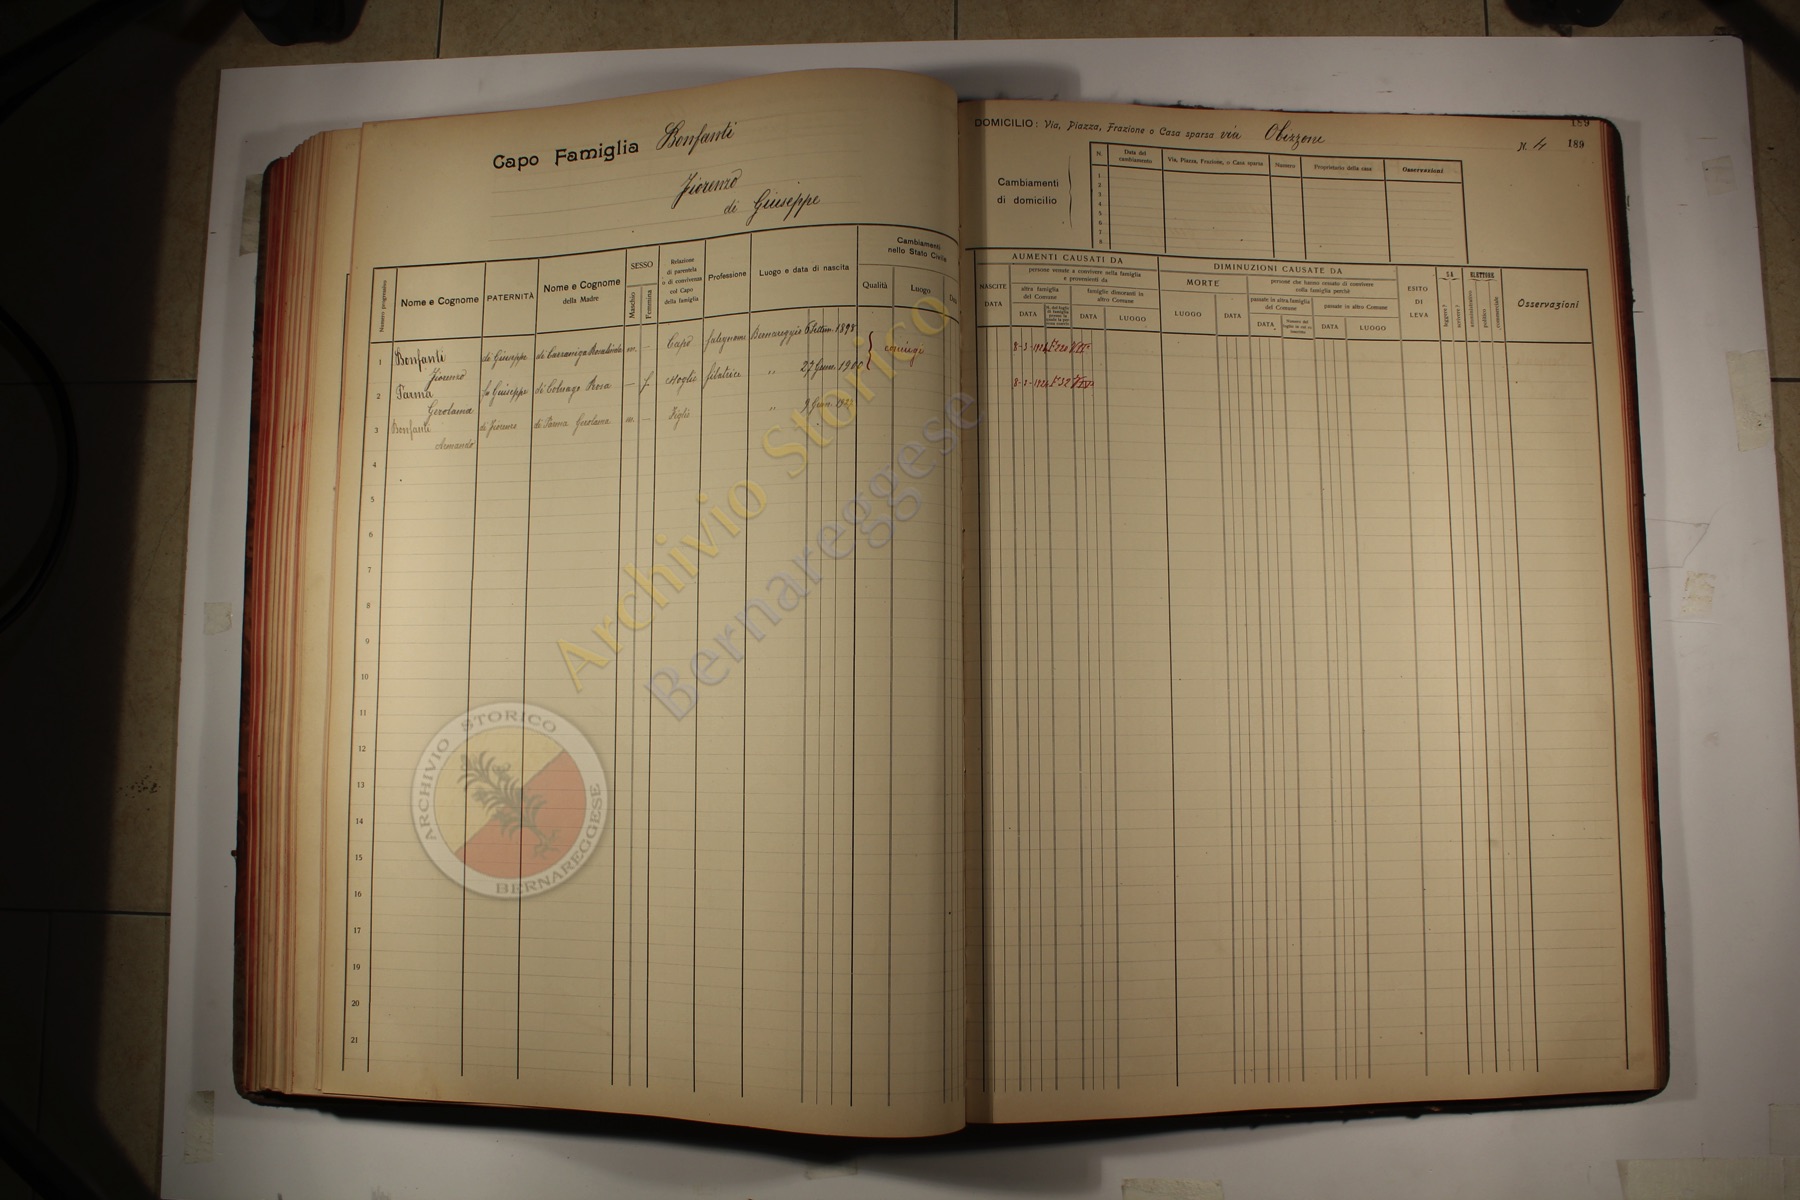 Capo Famiglia Bonfanti
Fiorenzo
di Giuseppe
DOMICILIO: Via, Piazza, Frazione o Casa sparsa via Obizzone
N. 4
189
189
Cambiamenti
di domicilio
N.
Data del
cambiamento
Via, Piazza, Frazione, o Casa sparsa
Numero
Proprietario della casa
Osservazioni
1
2
3
4
5
6
7
8
Numero progressivo
Nome e Cognome
PATERNITÀ
Nome e Cognome
della Madre
SESSO
Maschio
Femmina
Relazione
di parentela
o di convivenza
col Capo
della famiglia
Professione
Luogo e data di nascita
Cambiamenti
nello Stato Civile
Qualità
Luogo
Data
AUMENTI CAUSATI DA
NASCITE
DATA
persone venute a convivere nella famiglia
e provenienti da
altra famiglia
del Comune
DATA
famiglie dimoranti in
altro Comune
DATA
LUOGO
DIMINUZIONI CAUSATE DA
MORTE
LUOGO
DATA
persone che hanno cessato di convivere
colla famiglia perchè
passate in altra famiglia
del Comune
DATA
passate in altro Comune
DATA
LUOGO
ESITO
DI
LEVA
SA
leggere?
scrivere?
ELETTORE
amministrativo
politico
commerciale
Osservazioni
1
Bonfanti
Fiorenzo
di Giuseppe
m.
—
Capo
falegname
Bernareggio 6 Settem. 1898
coniugi
2
Parma
Gerolama
fu Giuseppe
di Colnago Rosa
—
f
Moglie
filatrice
"
27 Genn. 1900
3
Bonfanti
Armando
di Fiorenzo
di Parma Gerolama
m.
—
Figlio
"
9 Genn. 1922
4
5
6
7
8
9
10
11
12
13
14
15
16
17
19
20
21
Archivio Storico
Bernareggese
ARCHIVIO STORICO
BERNAREGGESE